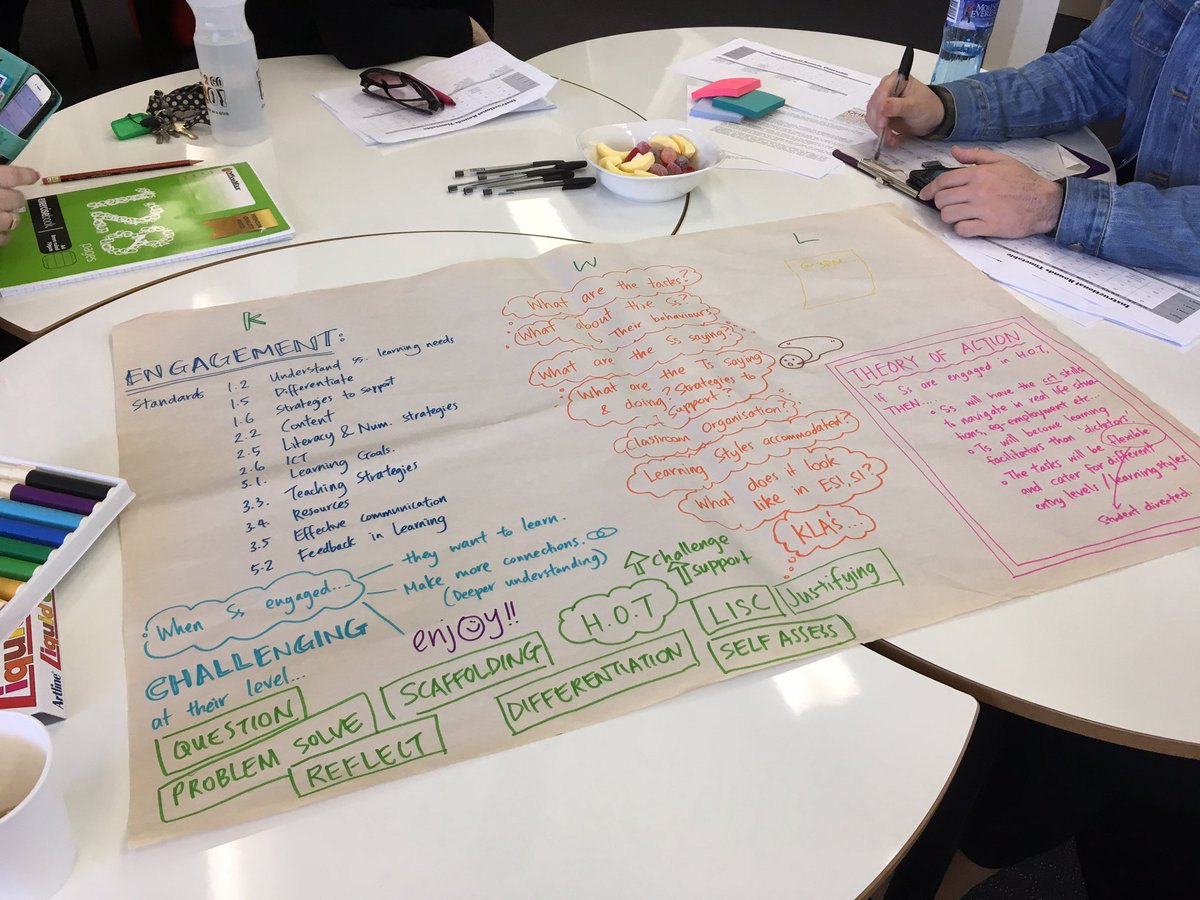 K
ENGAGEMENT:
Standards
1.2 Understand ss. learning needs
1.5 Differentiate
1.6 Strategies to support
2.2 Content
2.5 Literacy & Num. strategies
2.6 ICT
3.1. Learning Goals.
3.3. Teaching Strategies
3.4. Resources
3.5 Effective communication
5.2 Feedback in Learning
When Ss engaged...
they want to learn.
Make more connections.
(Deeper understanding)
enjoy!!
CHALLENGING
at their level...
QUESTION
PROBLEM SOLVE
REFLECT
SCAFFOLDING
DIFFERENTIATION
H.O.T
Challenge
support
LISC
Justifying
SELF ASSESS
W
What are the tasks?
What about the Ss?
Their behaviours?
What are the Ss saying?
What are the Ts saying
& doing? Strategies to
Support??
Classroom Organisation?
Learning Styles accommodated?
What does it look
like in ES1, S1?
KLA's...
L
@ 3PM
THEORY OF ACTION
If Ss are engaged in H.O.T,
THEN...
Ss will have the skills
to navigate in real life situa
tions, eg-employment etc...
Ts will become learning
facilitators than 'dictators'.
The tasks will be flexible
and cater for different
entry levels / learning styles.
Student directed.
Instructional Rounds Timetable
Instructional Rounds Timetable
exercise book
pages
Artline